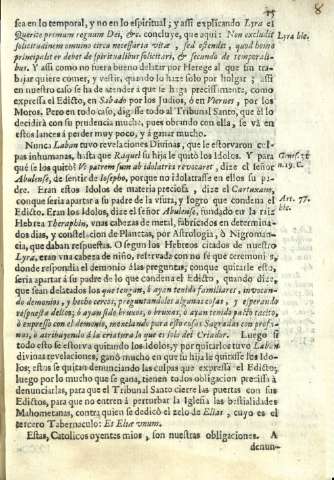 25
8
sea en lo temporal, y no en lo espiritual; y assi explicando Lyra el
Quærite primum regnum Dei, &c. concluye, que aqui: Non excludit
Lyra hîc.
solicitudinem omnino circa necessaria vitæ, sed ostendit, quod homo
principaliter debet de spiritualibus solicitari, & secundo de temporali-
bus. Y assi como no fuera bueno delatar por Herege al que sin tra-
bajar quiere comer, y vestir, quando lo haze solo por holgar; assi
en nuestro caso se ha de atender à que se haga precissamente, como
expressa el Edicto, en Sabado por los Judios, ò en Viernes, por los
Moros. Pero en todo caso, digasse todo al Tribunal Santo, que èl lo
decidirà con su prudencia mucha, pues obrando con ella, se và en
estos lances à perder muy poco, y à ganar mucho.
Nunca Laban tuvo revelaciones Divinas, que le estorvaron cul-
pas inhumanas, hasta que Raquel su hija le quitò los Idolos. Y para
Genes. 31
què se los quitò? Vt patrem suum ab idolatria revocaret, dize el señor
n. 19. C.
Abulense, de sentir de Iosepho, porque no idolatrasse en ellos su pa-
dre. Eran estos Idolos de materia preciosa, dize el Cartuxano,
Art. 77.
conque seria apartar à su padre de la vsura, y logro que condena el
hîc.
Edicto. Eran los Idolos, dize el señor Abulense, fundado en la raìz
Hebrea Theraphin, vnas cabezas de metal, fabricados en determina-
dos dias, y constelacion de Planetas, por Astrologia, ò Nigroman-
cia, que daban respuestas. O segun los Hebreos citados de nuestro
Lyra, eran vna cabeza de niño, reservada con no sè que ceremonias,
donde respondia el demonio à las preguntas; conque quitarle esto,
seria apartar à su padre de lo que condena el Edicto, quando dize,
que sean delatados los que tengan, ò ayan tenido familiares, invocan-
do demonios, y hecho cercos, preguntandoles algunas cosas, y esperando
respuesta dellos; ò ayan sido bruxos, ò bruxas, ò ayan tenido pacto tacito,
ò expresso con el demonio, mezclando para esto cosas Sagradas con profa-
nas, ò atribuyendo à la criatura lo que es solo del Criador. Luego si
todo esto se estorva quitando los Idolos, y por quitarlos tuvo Laban
divinas revelaciones, ganò mucho en que su hija le quitasse los Ido-
los; estos se quitan denunciando las culpas que expressa el Edicto;
luego por lo mucho que se gana, tienen todos obligacion precissa à
denunciarlas, para que el Tribunal Santo cierre las puertas con sus
Edictos, para que no entren à perturbar la Iglesia las bestialidades
Mahometanas, contra quien se dedicò el zelo de Elias, cuyo es el
tercero Tabernaculo: Et Eliæ vnum.
Estas, Catolicos oyentes mios, son nuestras obligaciones. A
denun-